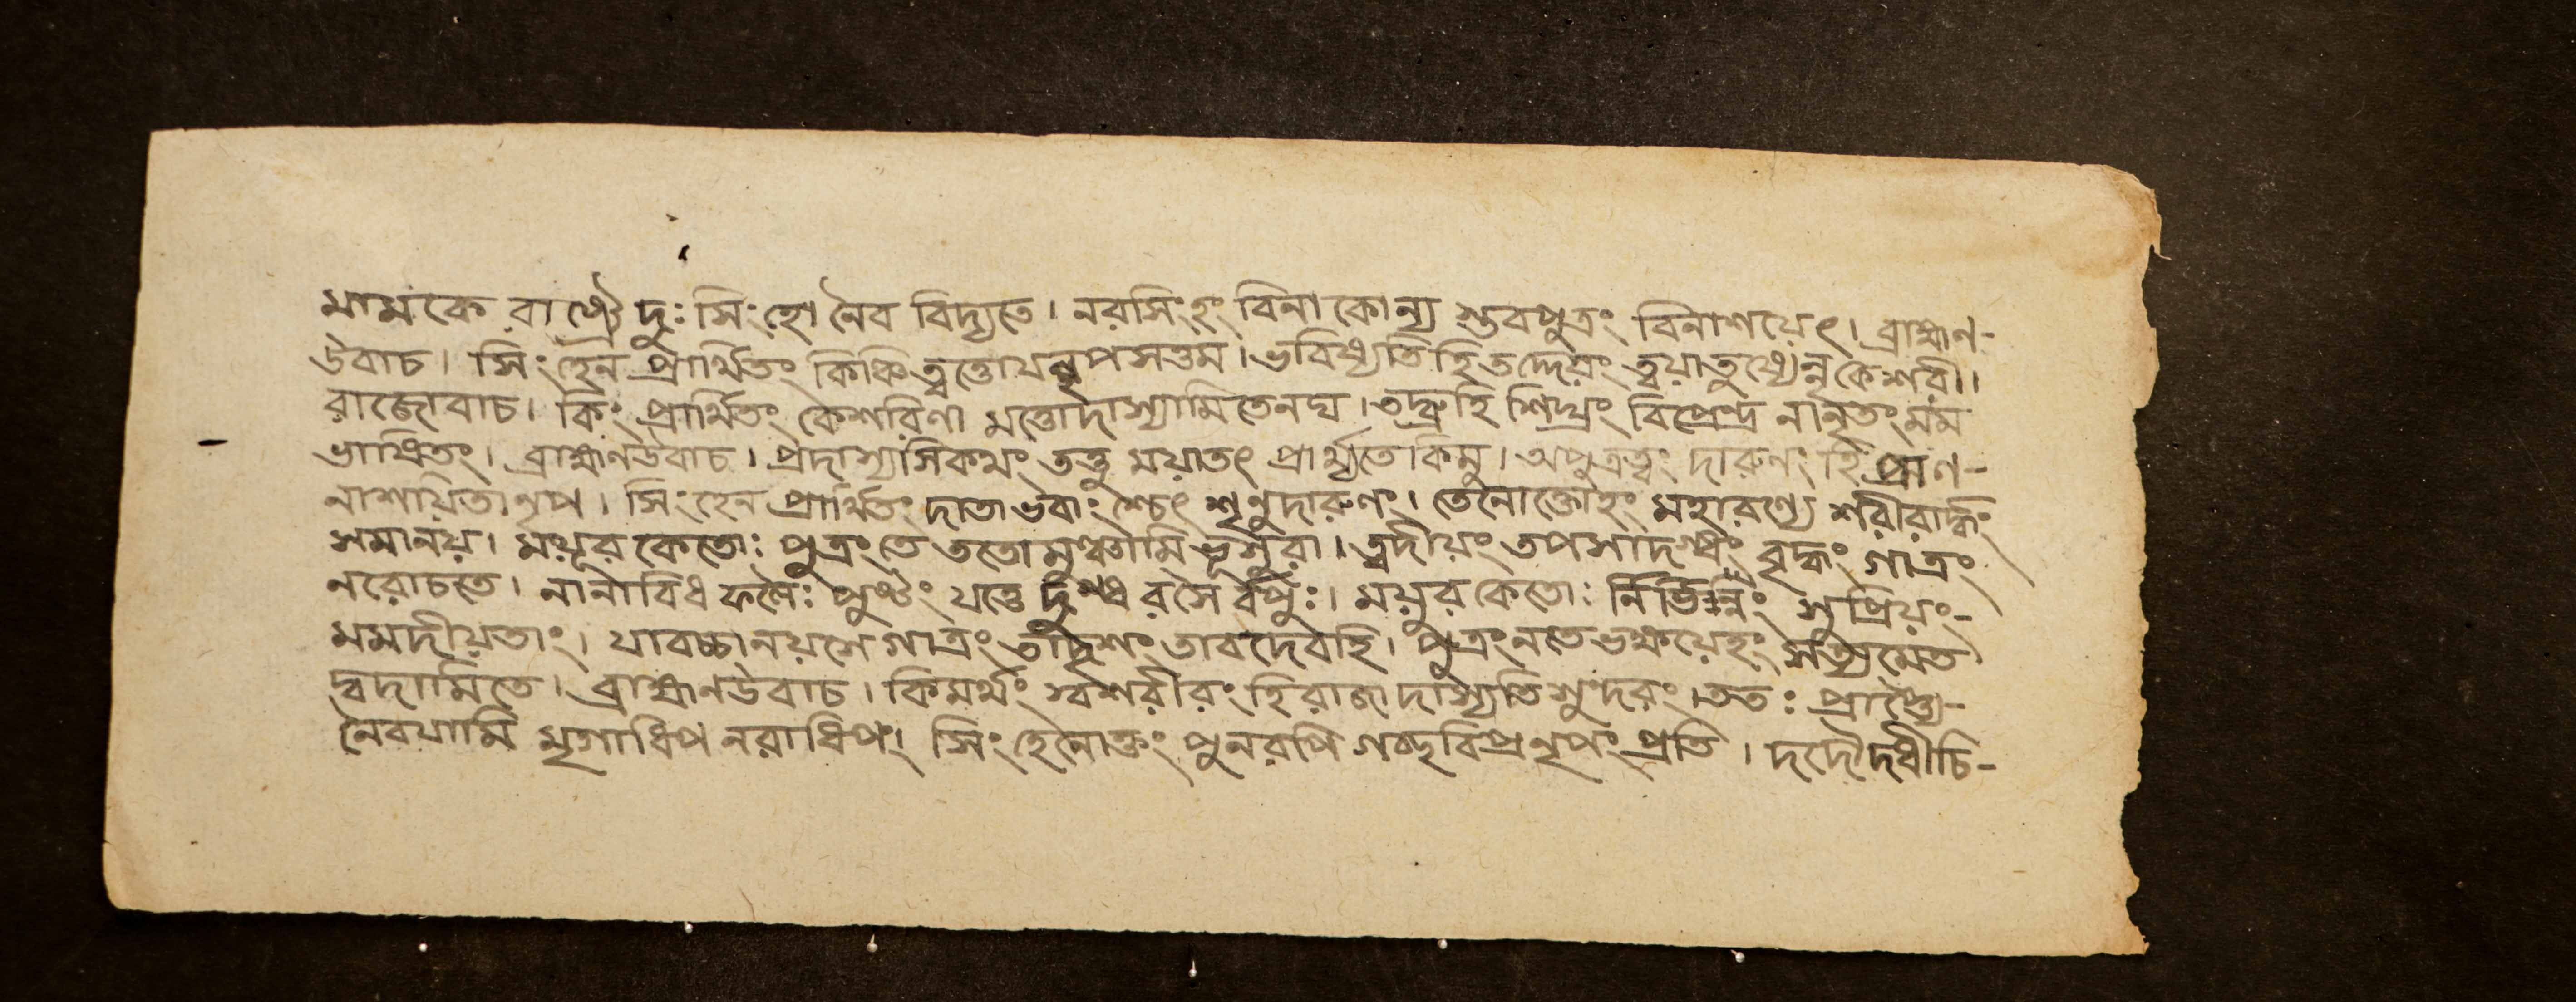 মামকে রাষ্ট্রে দুঃ সিংহো নৈব বিদ্যতে। নরসিংহং বিনা কোন্য স্তবপুত্রং বিনাশয়েৎ। ব্রাহ্মণ-
উবাচ। সিংহেন প্রার্থিতং কিঞ্চিত্ত্বত্তোযন্নৃপসত্তম। ভবিষ্যতি হি তদ্দেয়ং ত্বয়া তুষ্যেন্ন কেশরী।।
রাজোবাচ। কিং প্রার্থিতং কেশরিণা মত্তোদাস্যামিতেনঘ। তদ্ব্রুহি শিঘ্রং বিপ্রেন্দ্র নানৃতং মম
ভাষিতং। ব্রাহ্মণউবাচ। প্রদাস্যসিকথং তত্তু ময়াতৎ প্রার্থ্যতে কিমু। অপুত্রত্বং দারুনং হি প্রাণ-
নাশয়িতা নৃপ। সিংহেন প্রার্থিতং দাতা ভবাংশ্চেৎ শৃণুদারুণং। তেনোক্তোহং মহারণ্যে শরীরার্দ্ধং
সমানয়। ময়ূর কেতোঃ পুত্রং তে ততো মুঞ্চামি ভূসুরা। ত্বদীয়ং তপসাদগ্ধং বৃদ্ধং গাত্রং
নরোচতে। নানাবিধ ফলৈঃ পুষ্টং যত্তে দুগ্ধ রসৈ র্বপুঃ। ময়ুর কেতোঃ র্নির্ভিন্নং সুপ্রিয়ং-
মমদীয়তাং। যাবচ্চানয়সে গাত্রং তাদৃশং তাবদেবহি। পুত্রং নতে ভক্ষয়েহং সত্যমেত
দ্বদামিতে। ব্রাহ্মণউবাচ। কিমর্থং স্বশরীরং হি রাজা দাস্যতি সুন্দরং। তত: প্রার্থ্যে-
নৈবযামি মৃগাধিপ নরাধিপং। সিংহেনোক্তং পুনরপি গচ্ছবিপ্র নৃপং প্রতি। দদৌ দধীচি-